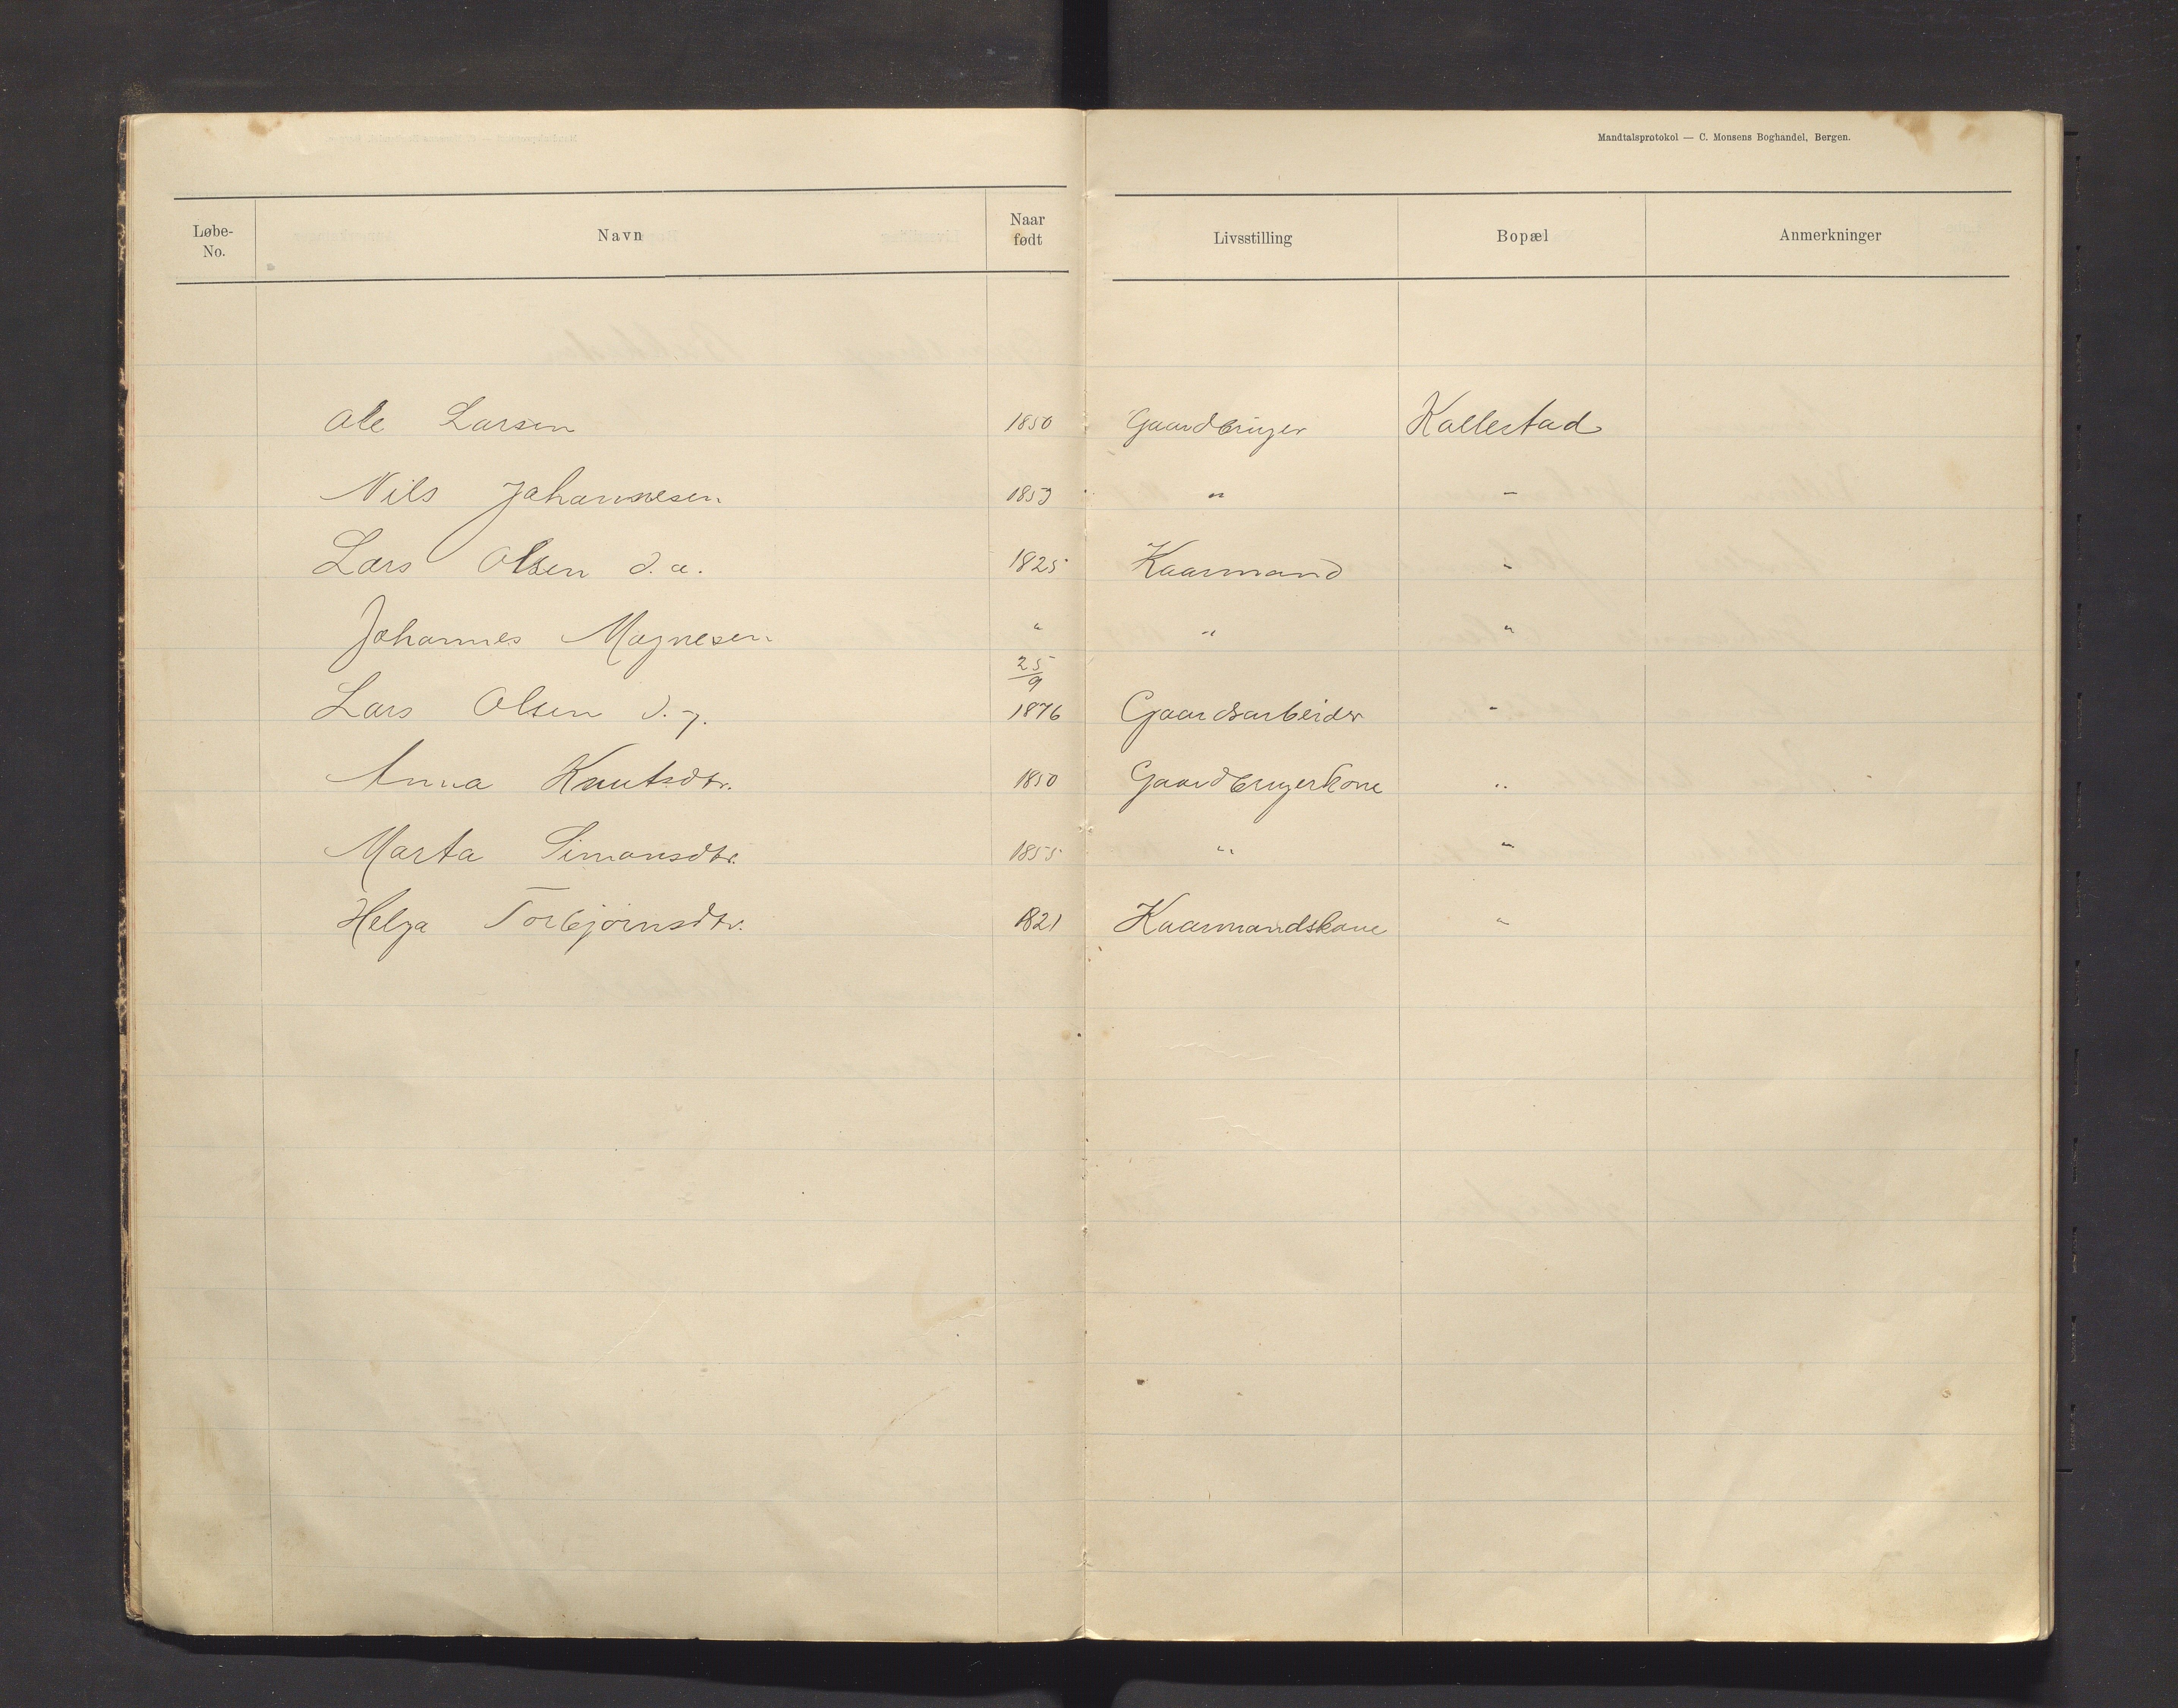 Mandtalsprotokol — C. Monsens Boghandel, Bergen.
Løbe-No. Navn Naar født Livsstilling Bopæl Anmerkninger
Ole Larsen 1850 Gaardbruger Kallestad
Nils Johannesen 1853 " "
Lars Olsen d.æ. 1825 Kaarmand "
Johannes Magnesen " " "
Lars Olsen d.y. 25/9 1876 Gaardsarbeider "
Anna Knutsdtr. 1850 Gaardbrugerkone "
Marta Simonsdtr. 1855 " "
Helga Torbjørnsdtr. 1821 Kaarmandskone "